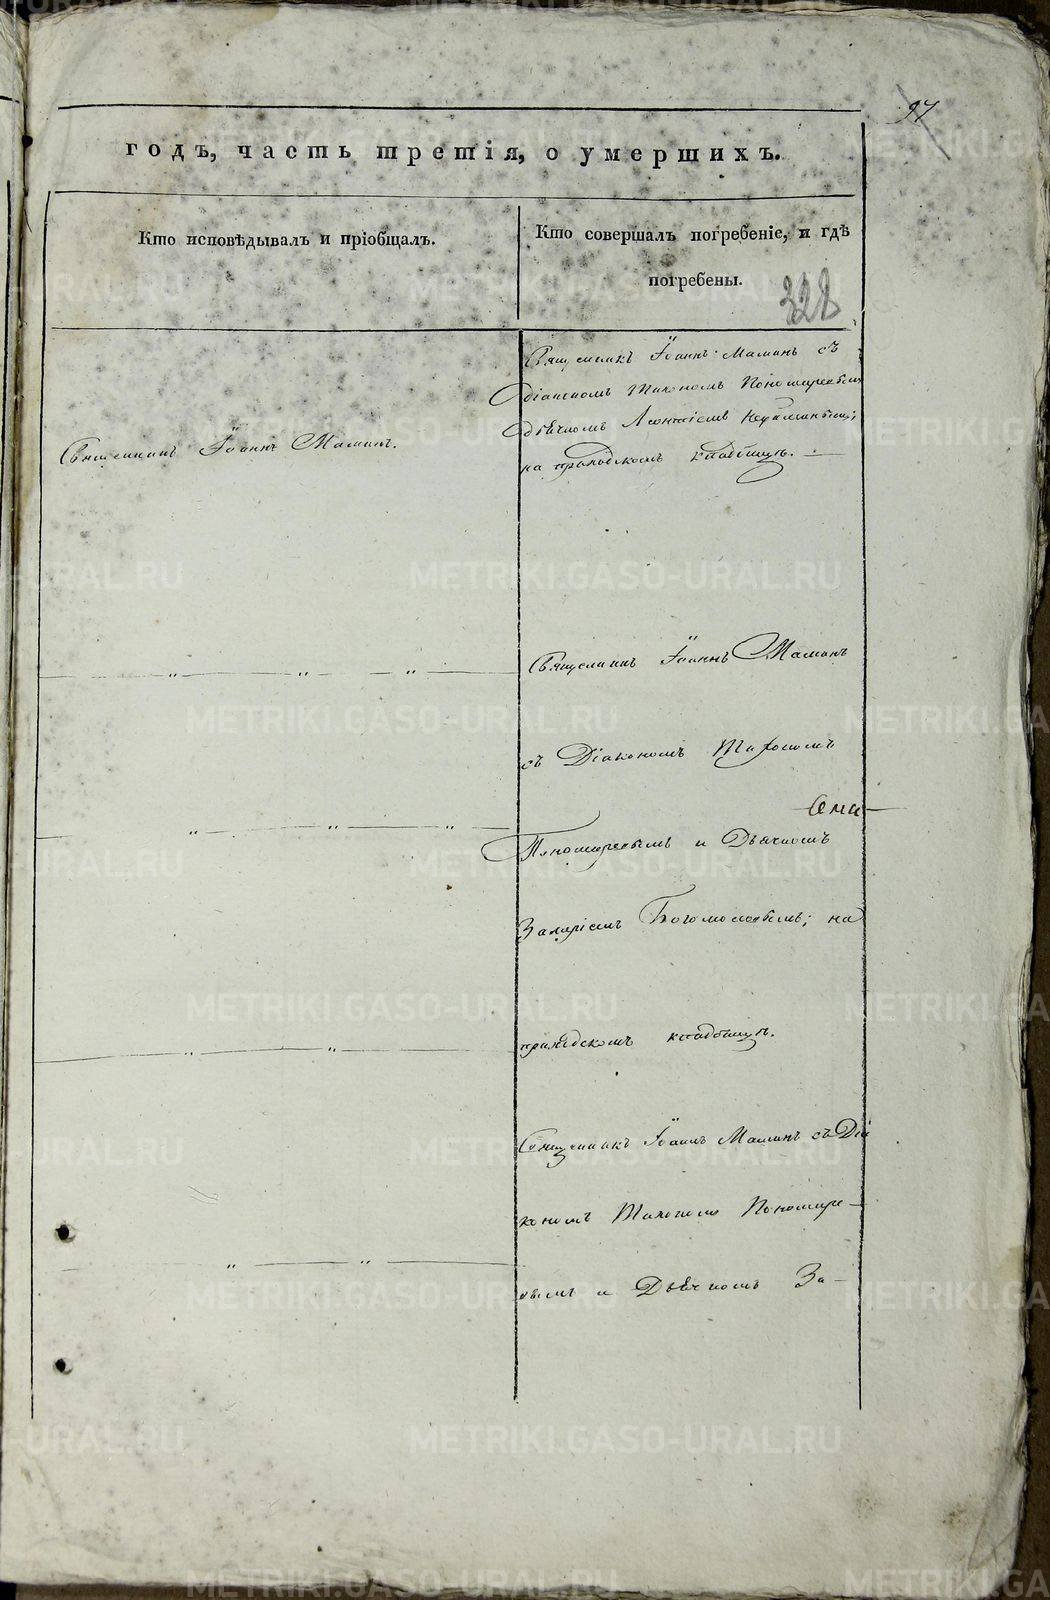 97
годъ, часть третія, о умершихъ.
Кто исповѣдывалъ и пріобщалъ.
Кто совершалъ погребеніе, и гдѣ
погребены.
328
Священникъ Іоаннъ Маминъ съ
Діакономъ Тихономъ Пономаревымъ
Дьячкомъ Леонтіемъ
на приходскомъ кладбищѣ.
Священникъ Іоаннъ Маминъ.
Священникъ Іоаннъ Маминъ
съ Діакономъ Тихономъ
Пономаревымъ и Дьячкомъ
Захаріемъ Богомоловымъ; на
приходскомъ кладбищѣ.
Священникъ Іоаннъ Маминъ съ Діа
кономъ Тихономъ Пономаре-
вымъ и Дьячкомъ За-
METRIKI.GASO-URAL.RU